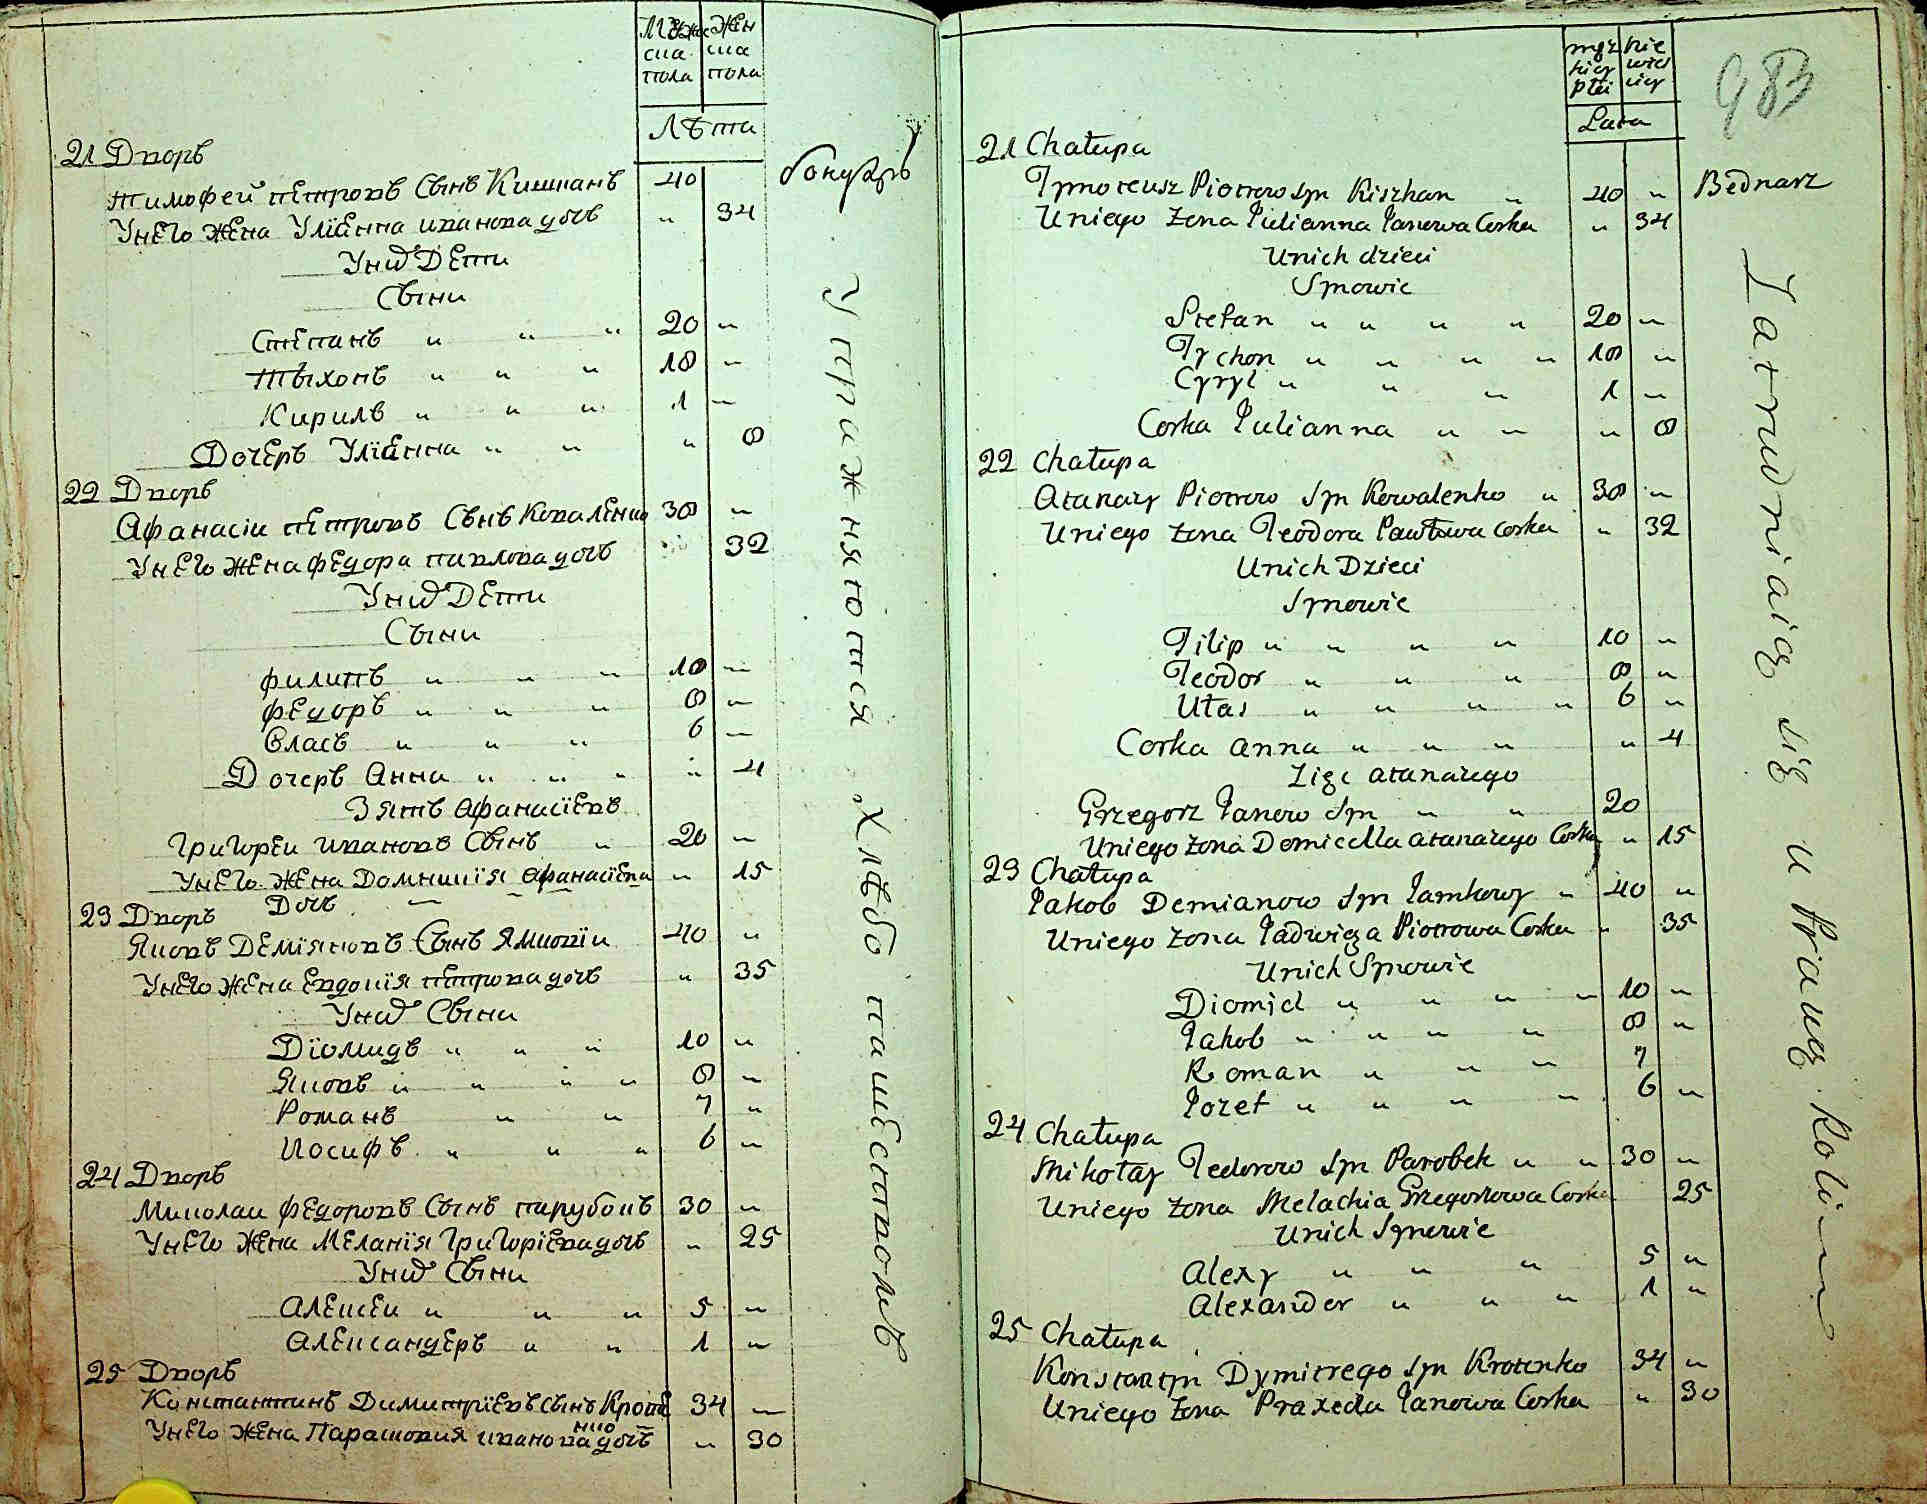 Мужес ска пола
Жен ска пола
Лѣта
21 Дворъ
Тимофей Петровъ Сынъ Кишканъ 40
Унего жена Улiѣнна иванова дочь " 34
Уних Дети
Сыни
Степанъ " " " 20 "
Тыхонъ " " " 18 "
Кирилъ " " " 1 "
Дочеръ Улiѣнна " " " 8
22 Дворъ
Афанасiи Петровъ Сынъ Коваленко 38 "
Унего жена Федора павлова дочь 32
Уних Дети
Сыни
Филипъ " " " 10 "
Федоръ " " " 8 "
Власъ " " " 6 "
Дочеръ Анна " " " " 4
Зятъ Афанасiевъ
Григорiи ивановъ Сынъ " 20 "
Унего жена Домникiя Афанасiева " 15
Дочь
23 Дворъ
Яковъ Демiяновъ Сынъ Ямковiи 40 "
Унего жена Евдокiя Петрова дочь " 35
Уних Сыни
Дiомидъ " " " 10 "
Яковъ " " " " 8 "
Романъ " " 7 "
Иосифъ " " " 6 "
24 Дворъ
Миколаи Федоровъ Сынъ парубокъ 30 "
Унего жена Меланiя Григорiева дочь " 25
Уних Сыни
Алексеи " " " 5 "
Александеръ " " 1 "
25 Дворъ
Константинъ Димитрiевъ сынъ Кроте 34 "
нко
Унего жена Парасковия иванова дочь " 30
бондаръ
Упражняются Хлѣбопашествомъ
męz kiey płci
nie wies ciey
Lata
983
21 Chałupa
Tymoteusz Piotrow syn Kiszkan " 40 "
Uniego zona Julianna Janowa Corka " 34
Unich dzieci
Synowie
Stefan " " " " 20 "
Tychon " " " " 18 "
Cyryl " " " 1 "
Corka Julianna " " " 8
22 Chałupa
Atanazy Piotrow syn Kowalenko " 38 "
Uniego zona Teodora Pawłowa corka " 32
Unich Dzieci
Synowie
Filip " " " " 10 "
Teodor " " " 8 "
Utas " " " " 6 "
Corka Anna " " " " 4
Zięc atanazego
Grzegorz Janow syn " " 20
Uniego zona Domicella atanazego Corka " 15
23 Chałupa
Jakob Demianow syn Jamkowy " 40 "
Uniego zona Jadwiga Piotrowa Corka " 35
Unich Synowie
Diomid " " " " 10 "
Jakob " " " " 8 "
Roman " " " 7
Jozef " " " " 6 "
24 Chałupa
Mikołay Fedorow syn Parobek " " 30 "
Uniego zona Melachia Grzegorzowa Corka 25
Unich Synowie
Alexy " " " 5 "
Alexander " " " 1 "
25 Chałupa
Konstantyn Dymitrego syn Krotenko 34 "
Uniego zona Praxeda Janowa Corka " 30
Bednarz
Zatrudniaią się u Praw. Roli